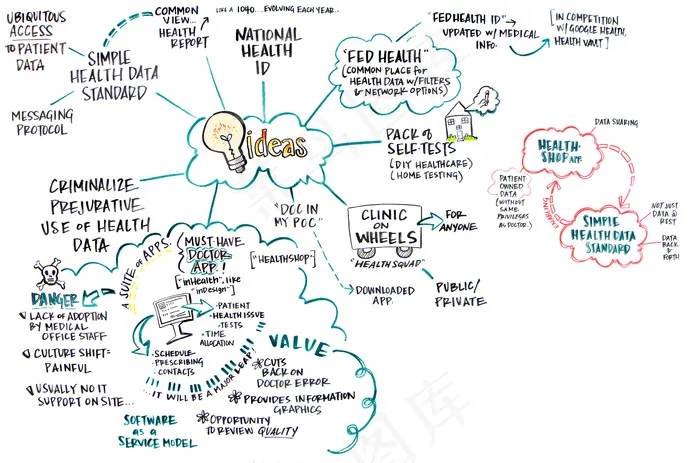 UBIQUITOUS
ACCESS
TO PATIENT
DATA
COMMON
VIEW...
HEALTH
REPORT
LIKE A 1040...EVOLVING EACH YEAR...
SIMPLE
HEALTH DATA
STANDARD
MESSAGING
PROTOCOL
NATIONAL
HEALTH
ID
"FED HEALTH"
(COMMON PLACE FOR
HEALTH DATA W/FILTERS
& NETWORK OPTIONS)
"FED HEALTH ID"
UPDATED W/ MEDICAL
INFO.
[IN COMPETITION
W/ GOOGLE HEALTH,
HEALTH VAULT]
ideas
PACK OF
SELF-TESTS
(DIY HEALTHCARE)
(HOME TESTING)
DATA SHARING
HEALTH-
SHOP APP
PATIENT
OWNED
DATA
(WITHOUT
SAME
PRIVILEGES
AS DOCTOR)
SHARING
SIMPLE
HEALTH DATA
STANDARD
NOT JUST
DATA @
REST
DATA
BACK &
FORTH
CRIMINALIZE
PREJURATIVE
USE OF HEALTH
DATA
"DOC IN
MY POC"
DOWNLOADED
APP.
CLINIC
ON
WHEELS
"HEALTH SQUAD"
FOR
ANYONE
PUBLIC/
PRIVATE
A SUITE OF APPS.
(MUST HAVE
DOCTOR
APP!
["inHealth", like
"inDesign"]
["HEALTHSHOP"]
DANGER
LACK OF ADOPTION
BY MEDICAL
OFFICE STAFF
CULTURE SHIFT=
PAINFUL
USUALLY NO IT
SUPPORT ON SITE...
• PATIENT
• HEALTH ISSUE
• TESTS
• TIME
ALLOCATION
• SCHEDULE
• PRESCRIBING
• CONTACTS
...IT WILL BE A MAJOR LEAP!
VALUE
CUTS
BACK ON
DOCTOR ERROR
PROVIDES INFORMATION
GRAPHICS
OPPORTUNITY
TO REVIEW QUALITY
SOFTWARE
AS A
SERVICE MODEL